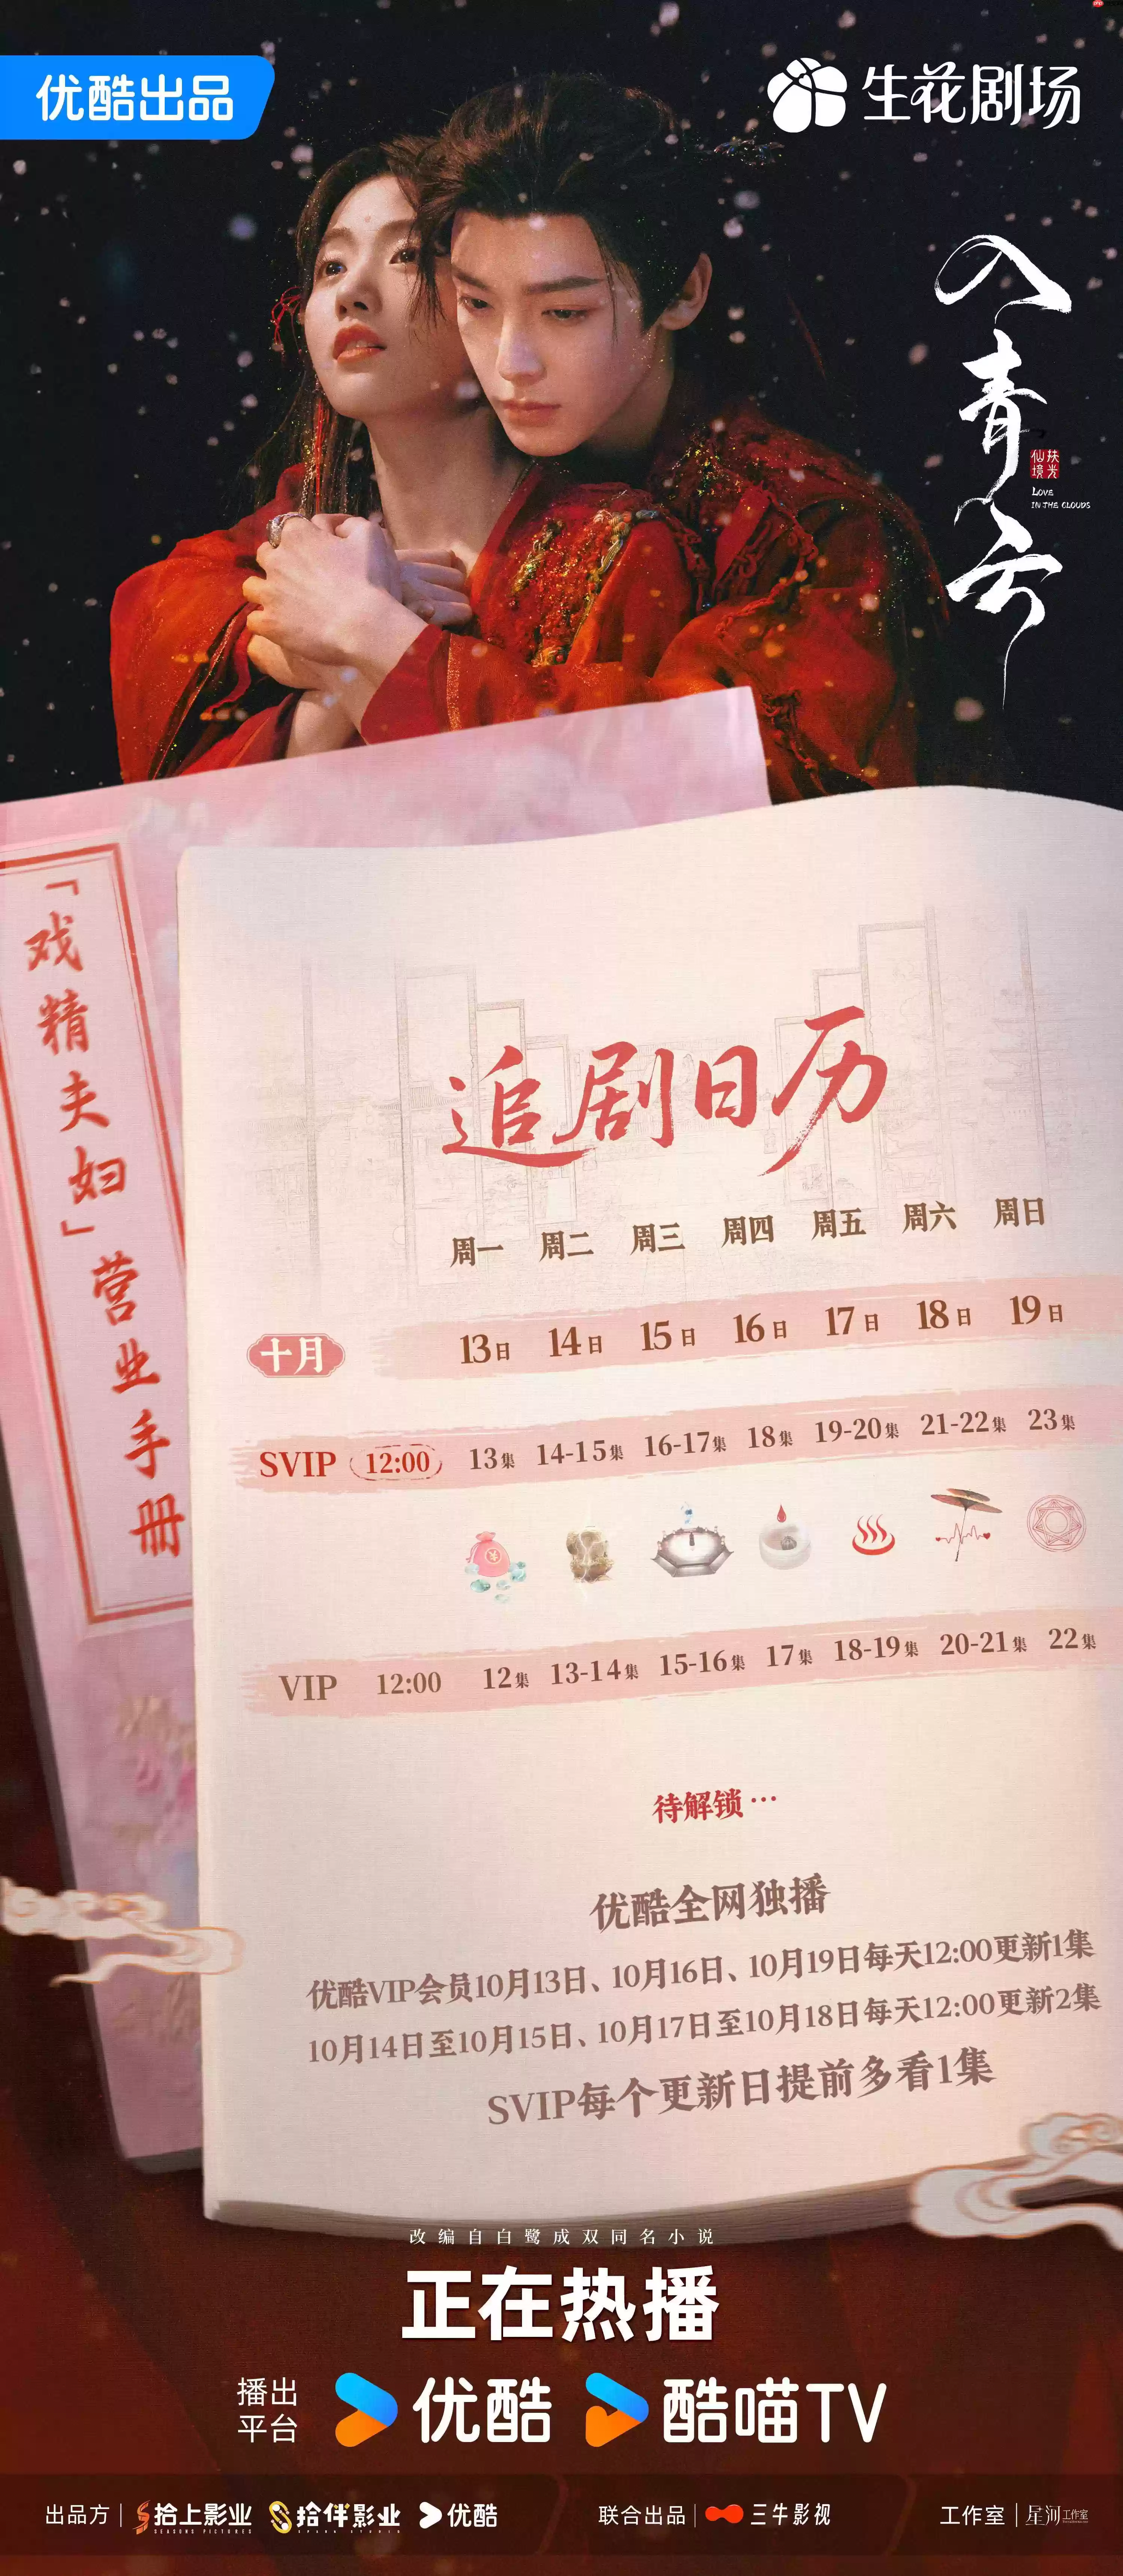 优酷出品
生花剧场
入青云
扶光
仙境
LOVE
IN THE CLOUDS
「戏精夫妇」营业手册
追剧日历
周一 周二 周三 周四 周五 周六 周日
十月 13日 14日 15日 16日 17日 18日 19日
SVIP 12:00 13集 14-15集 16-17集 18集 19-20集 21-22集 23集
VIP 12:00 12集 13-14集 15-16集 17集 18-19集 20-21集 22集
待解锁…
优酷全网独播
优酷VIP会员10月13日、10月16日、10月19日每天12:00更新1集
10月14日至10月15日、10月17日至10月18日每天12:00更新2集
SVIP每个更新日提前多看1集
改编自白鹭成双同名小说
正在热播
播出
平台
优酷
酷喵TV
出品方
拾上影业
SEASONS PICTURES
拾伴影业
优酷
联合出品
三牛影视
工作室
星河工作室